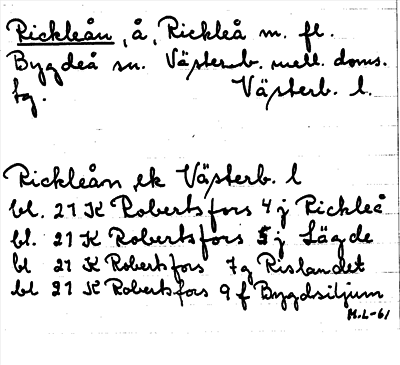 Rickleån, å, Rickleå m. fl.
Bygdeå sn. Västerb. mell. doms.
tg. Västerb. l.
Rickleån, ek Västerb. l
bl. 21 K Robertsfors 4 j Rickleå
bl. 21 K Robertsfors 5 j Lägde
bl 21 K Robertsfors 7 g Rislandet
bl 21 K Robertsfors 9 f Bygdsiljum
M.L-61